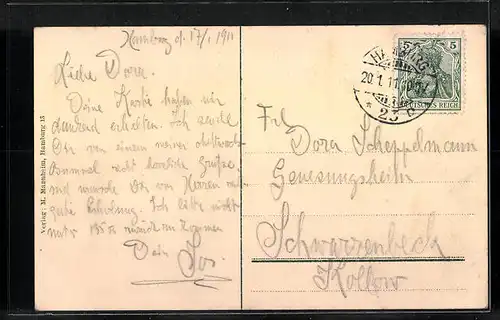 Hamburg d. 17/1 1911
Liebe Dora.
Deine Karte haben wir
dankend erhalten. Ich sende
Dir von einem meiner
Bummel recht herzliche Grüße
und wünsche Dir von Herzen
gute Erholung. Ich bitte nicht
Dein
Verlag: M. Mannheim, Hamburg 13
5
DEUTSCHES REICH
HAMBURG
20.1.11
* 23
Frl
Dora Scheppelmann
Genesungsheim
Schwarzenbeck
Kollow